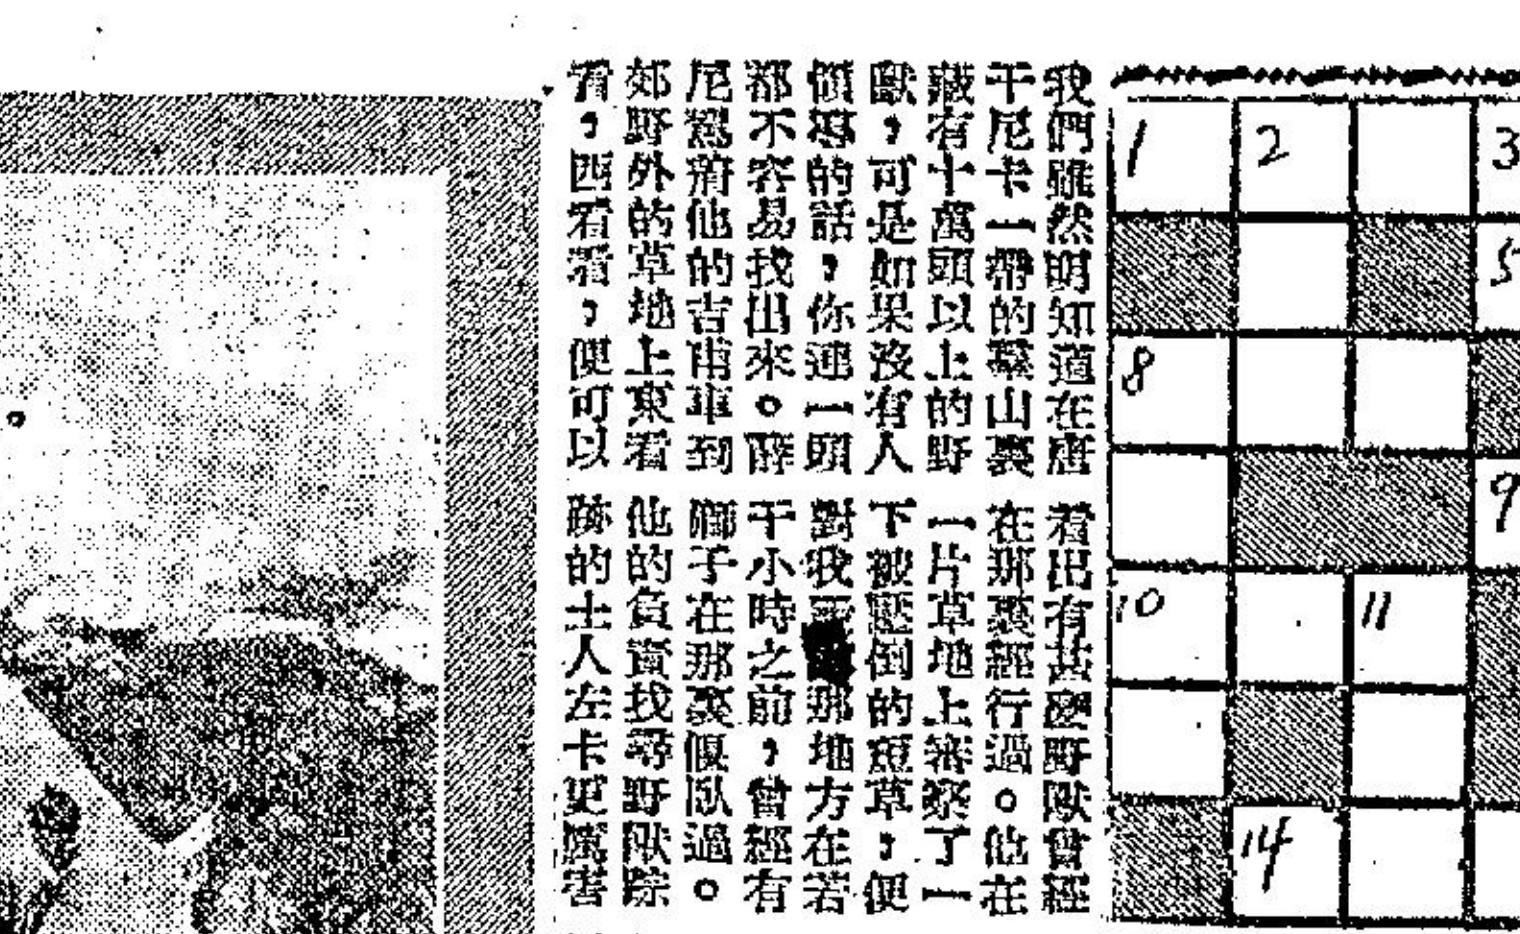 我們雖然明知道在唐
干尼卡一帶的羣山裏
藏有十萬頭以上的野
獸，可是如果沒有人
領導的話，你連一頭
都不容易找出來。薛
尼駕着他的吉甫車到
郊野外的草地上東看
看，西看看，便可以
看出有甚麼野獸曾經
在那裏經行過。他在
一片草地上審察了一
下被壓倒的短草，便
對我 那地方在若
干小時之前，曾經有
獅子在那裏偃臥過。
他的負責找尋野獸踪
跡的土人左卡更厲害
1
2
3
5
8
9
10
11
14